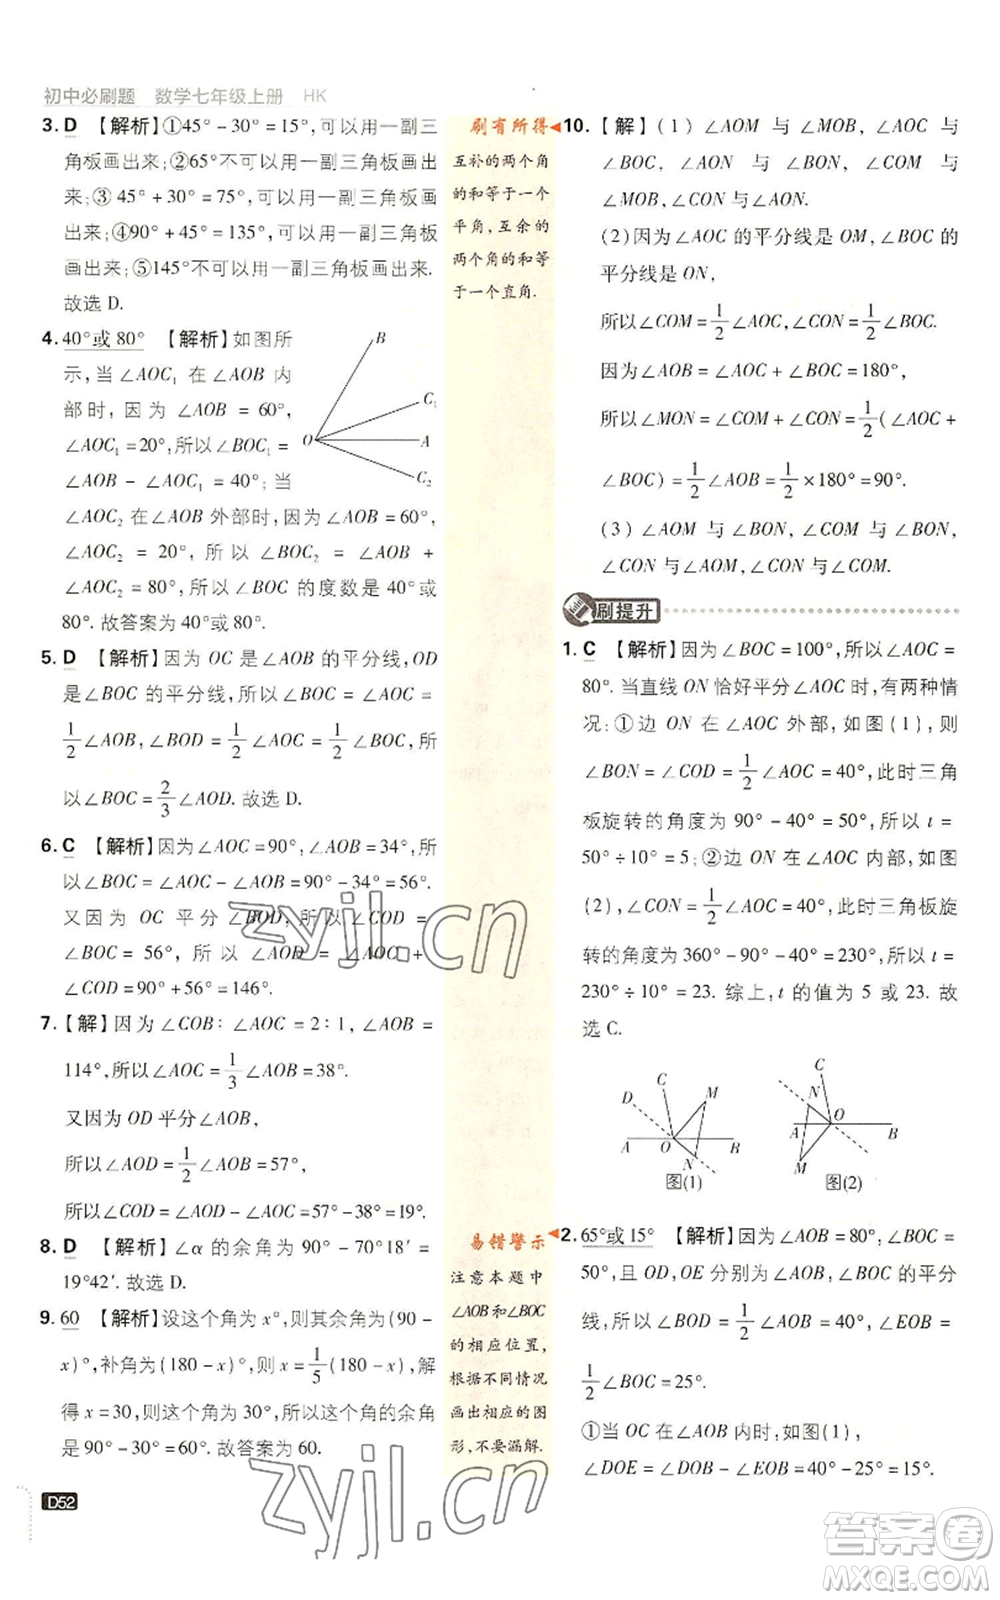 初中必刷题 数学七年级上册 HK
3. D 【解析】①45°-30°=15°,可以用一副三
角板画出来;②65°不可以用一副三角板画
出来;③ 45°+30°=75°,可以用一副三角板
画出来;④90°+45°=135°,可以用一副三角板
画出来;⑤145°不可以用一副三角板画出来.
故选 D.
4. 40°或 80° 【解析】如图所
示,当 ∠AOC₁ 在 ∠AOB 内
部时,因为 ∠AOB = 60°,
∠AOC₁=20°,所以∠BOC₁=
∠AOB - ∠AOC₁ = 40°;当
B
C₁
O
A
C₂
∠AOC₂ 在∠AOB 外部时,因为∠AOB=60°,
∠AOC₂ = 20°, 所以 ∠BOC₂ = ∠AOB +
∠AOC₂ = 80°,所以∠BOC 的度数是 40°或
80°.故答案为 40°或 80°.
5. D 【解析】因为 OC 是∠AOB 的平分线,OD
是∠BOC 的平分线,所以∠BOC = ∠AOC =
1/2∠AOB,∠BOD=1/2∠AOC=1/2∠BOC,所
以∠BOC=2/3∠AOD.故选 D.
6. C 【解析】因为∠AOC=90°,∠AOB=34°,所
以∠BOC=∠AOC-∠AOB=90°-34°=56°.
又因为 OC 平分∠BOD,所以∠COD =
∠BOC = 56°, 所以 ∠AOD = ∠AOC+
∠COD=90°+56°=146°.
7.【解】因为∠COB:∠AOC=2:1,∠AOB=
114°,所以∠AOC=1/3∠AOB=38°.
又因为 OD 平分∠AOB,
所以∠AOD=1/2∠AOB=57°,
所以∠COD=∠AOD-∠AOC=57°-38°=19°.
8. D 【解析】∠α 的余角为 90°-70°18′=
19°42′.故选 D.
9. 60 【解析】设这个角为 x°,则其余角为(90-
x)°,补角为(180-x)°,则 x=1/5(180-x),解
得 x=30,则这个角为 30°,则这个角的余角
是 90°-30°=60°.故答案为 60.
D52
刷有所得
互补的两个角
的和等于一个
平角,互余的
两个角的和等
于一个直角.
易错警示
注意本题中
∠AOB和∠BOC
的相应位置,
根据不同情况
画出相应的图
形,不要漏解.
10.【解】(1)∠AOM 与 ∠MOB,∠AOC 与
∠BOC,∠AON 与 ∠BON,∠COM 与
∠MOB,∠CON 与∠AON.
(2)因为∠AOC 的平分线是 OM,∠BOC 的
平分线是 ON,
所以∠COM=1/2∠AOC,∠CON=1/2∠BOC.
因为∠AOB=∠AOC+∠BOC=180°,
所以∠MON=∠COM+∠CON=1/2(∠AOC+
∠BOC)=1/2∠AOB=1/2×180°=90°.
(3)∠AOM 与∠BON,∠COM 与∠BON,
∠CON 与∠AOM,∠CON 与∠COM.
刷提升
1. C 【解析】因为∠BOC=100°,所以∠AOC=
80°.当直线 ON 恰好平分∠AOC 时,有两种情
况:①边 ON 在∠AOC 外部,如图(1),则
∠BON=∠COD=1/2∠AOC=40°,此时三角
板旋转的角度为 90°-40°=50°,所以 t=
50°÷10°=5;②边 ON 在∠AOC 内部,如图
(2),∠CON=1/2∠AOC=40°,此时三角板旋
转的角度为 360°-90°-40°=230°,所以 t=
230°÷10°=23.综上,t 的值为 5 或 23.故
选 C.
D
C
M
A
O
B
N
图(1)
C
N
O
A
B
M
图(2)
2. 65°或 15° 【解析】因为∠AOB=80°,∠BOC=
50°,且 OD,OE 分别为∠AOB,∠BOC 的平分
线,所以∠BOD=1/2∠AOB=40°,∠EOB=
1/2∠BOC=25°.
①当 OC 在∠AOB 内时,如图(1),
∠DOE=∠BOD-∠EOB=40°-25°=15°.
zyjl.cn
zyjl.cn
答案圈
MXQE.COM